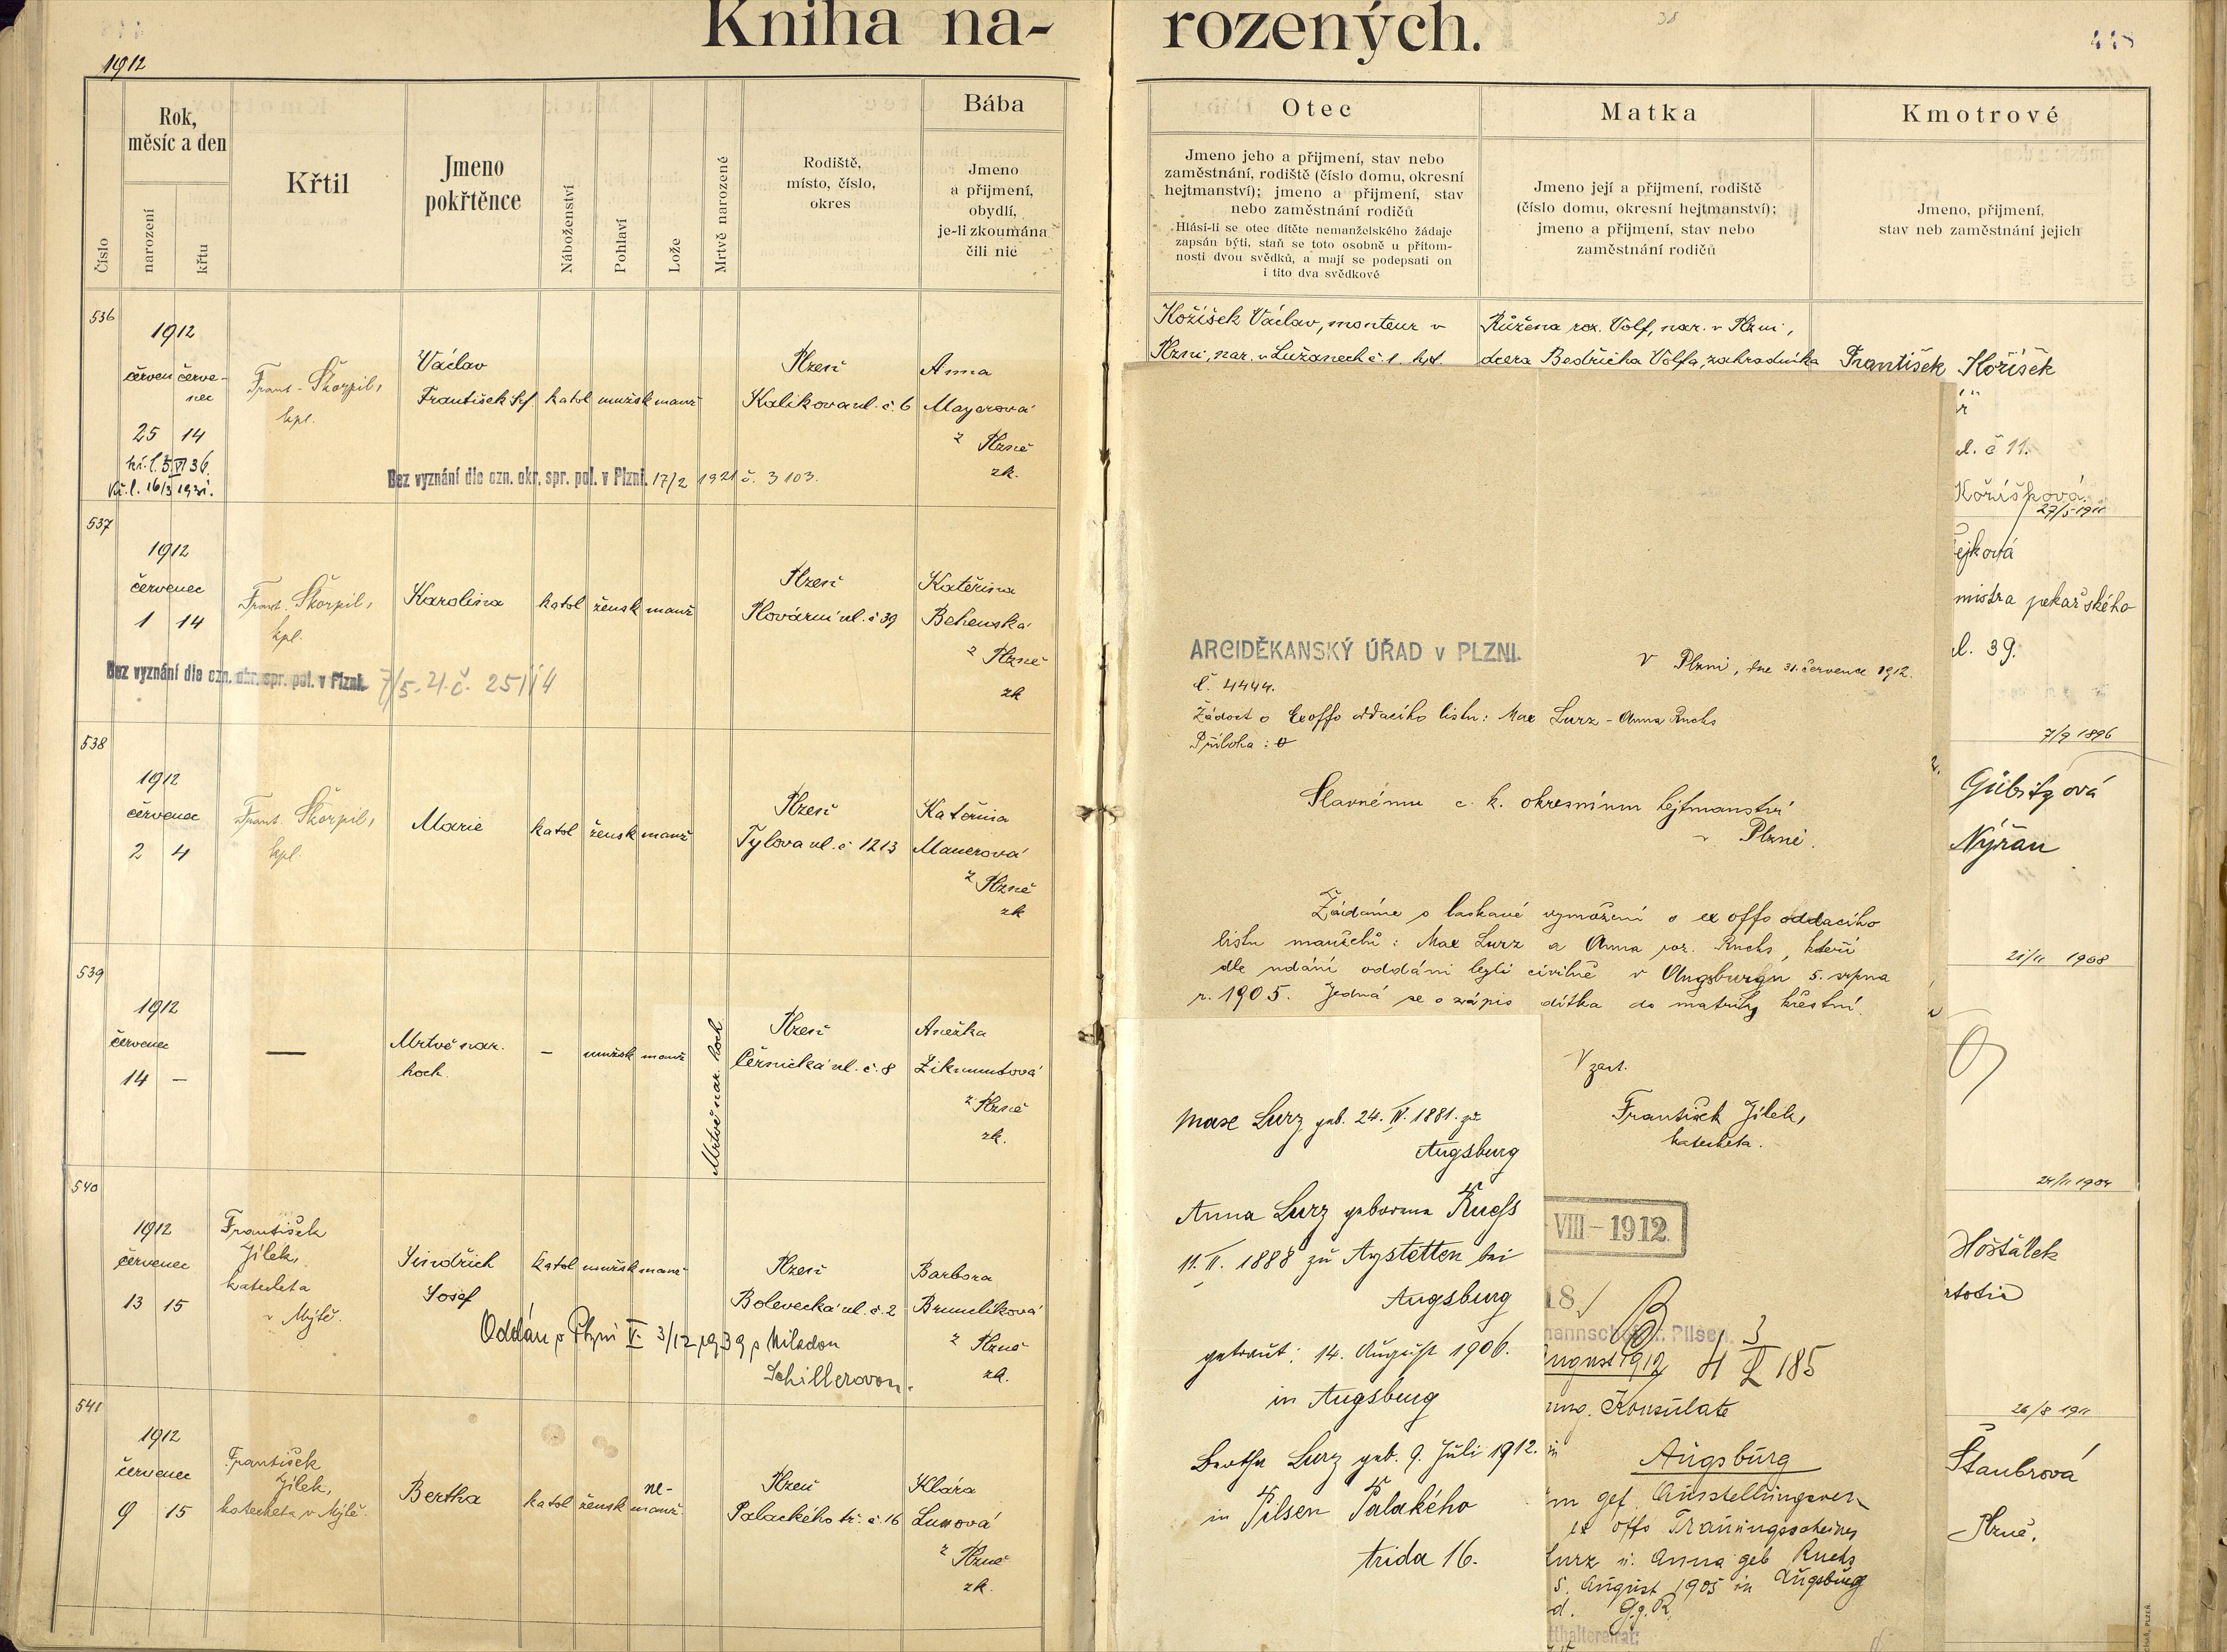 Kniha na-
rozených.
38
1912
Číslo
Rok,
měsíc a den
narození
křtu
Křtil
Jmeno
pokřtěnce
Náboženství
Pohlaví
Lože
Mrtvě narozené
Rodiště,
místo, číslo,
okres
Bába
Jmeno
a přijmení,
obydlí,
je-li zkoumána
čili nic
536
1912
červen červe-
nec
25 14
kř. l. 16/3 1931.
Frant. Škorpil,
kpl.
Václav
František
katol mužsk manž
Plzeň
Kalikova ul. č. 6
Anna
Mayerová
z Plzně
zk.
Bez vyznání dle ozn. okr. spr. pol. v Plzni. 17/2 1921 č. 3103.
537
1912
červenec
1 14
Frant. Škorpil,
kpl.
Karolina
katol žensk manž
Plzeň
Plovární ul. č 39
Kateřina
Behenská
z Plzně
zk
Bez vyznání dle ozn. okr. spr. pol. v Plzni. 7/5. 21. č.
538
1912
červenec
2 4
Frant. Škorpil,
kpl.
Marie
katol žensk manž
Plzeň
Tylova ul. č 1213
Kateřina
Mauerová
z Plzně
zk
539
1912
červenec
14 –
—
Mrtvě nar.
hoch.
– mužsk manž
Mrtvě nar. hoch
Plzeň
Černická ul. č. 8
Anežka
Zikmundová
z Plzně
zk.
540
1912
červenec
13 15
František
Jílek,
katecheta
v Mýtě.
Jindřich
Josef
katol mužsk manž
Plzeň
Bolevecká ul. č. 2
Barbora
Brumlíková
z Plzně
zk.
Oddán v Plzni V. 3/12 1939 s Miladou
Schillerovou.
541
1912
červenec
9 15
František
Jílek,
katecheta v Mýtě.
Bertha
katol žensk
ne-
manž.
Plzeň
Palackého tř. č. 16
Klára
Lunová
z Plzně
zk.
Otec
Jmeno jeho a přijmení, stav nebo
zaměstnání, rodiště (číslo domu, okresní
hejtmanství); jmeno a přijmení, stav
nebo zaměstnání rodičů
Hlásí-li se otec dítěte nemanželského žádaje
zapsán býti, staň se toto osobně u přítom-
nosti dvou svědků, a mají se podepsati on
i tito dva svědkové
Matka
Jmeno její a přijmení, rodiště
(číslo domu, okresní hejtmanství);
jmeno a přijmení, stav nebo
zaměstnání rodičů
Kmotrové
Jmeno, přijmení,
stav neb zaměstnání jejich
Kožíšek Václav, monteur v
Plzni, nar. v Lužanech č. 1. hjt.
Růžena roz. Volf, nar. v Plzni,
dcera Bedřicha Volfa, zahradníka
František Kožíšek
ul. č 11.
27/5 1911
ejková
mistra pekařského
ul. 39.
7/9 1896
Gübitzová
Nýřan
21/11 1908
24/11 1904
Hošťálek
26/8 1911
Štaubrová
Plzně.
ARCIDĚKANSKÝ ÚŘAD v PLZNI.
V Plzni, dne 31. července 1912.
č. 4444.
Žádost o Exoffo oddacího listu: Max Lurz - Anna Ruchs
Příloha: 0
Slavnému c. k. okresnímu hejtmanství
v Plzni.
Žádáme o laskavé vymožení o ex offo oddacího
listu manželů: Max Lurz a Anna roz. Ruchs, kteří
dle udání oddáni byli civilně v Augsburgu 5. srpna
r. 1905. Jedná se o zápis dítka do matriky křestní.
V zast.
František Jílek,
katecheta.
Max Lurz geb. 24. IV. 1881. zu
Augsburg
Anna Lurz geborene Ruchs
11. II. 1888 zu Aystetten bei
Augsburg
getraut: 14. August 1906.
in Augsburg
Bertha Lurz geb. 9. Juli 1912.
in Pilsen Palakého
trida 16.
-VIII-1912.
18.
mannschaft Pilsen.
August 1912
185
ung. Konsulate
in
Augsburg
um gef. Ausstellungsver-
ex offo Trauungsscheines
Lurz u. Anna geb Ruchs
5. August 1905 in Augsburg
tthaltereirat: